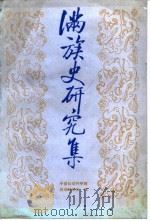 满族史研究集
中国社会科学院